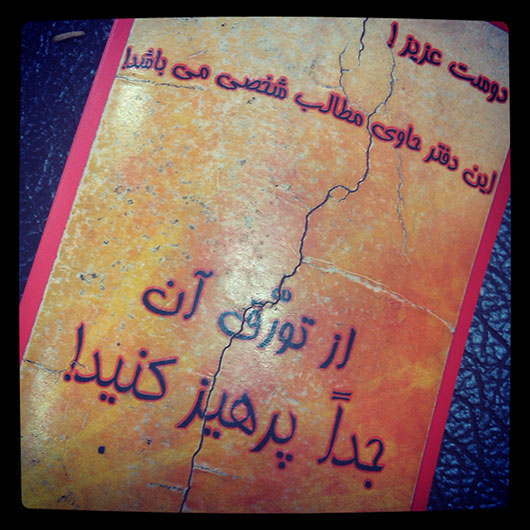 دوست عزیز !
این دفتر حاوی مطالب شخصی می باشد!
از تورّق آن
جداً پرهیز کنید!